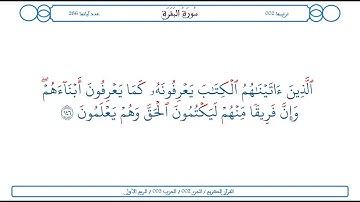 ترتيبها 002 سُورَةُ البَقَرَةِ عدد آياتها 286
ٱلَّذِينَ ءَاتَيْنَـٰهُمُ ٱلْكِتَـٰبَ يَعْرِفُونَهُۥ كَمَا يَعْرِفُونَ أَبْنَآءَهُمْ ۖ
وَإِنَّ فَرِيقًا مِّنْهُمْ لَيَكْتُمُونَ ٱلْحَقَّ وَهُمْ يَعْلَمُونَ ١٤٦
القرآن الكريم / الجزء 002 / الحزب 003 / الربع الأول